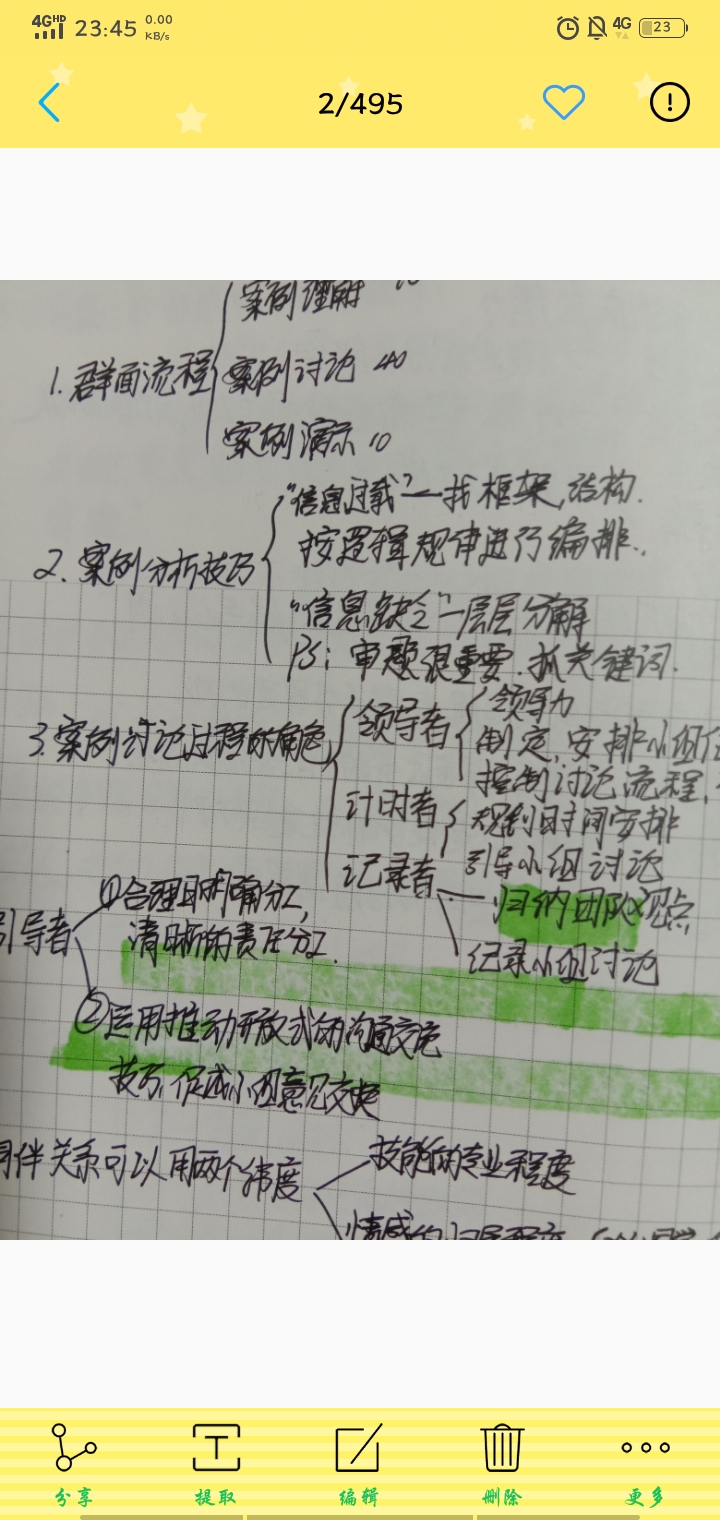 4G HD 23:45 0.00 KB/s 4G 23
2/495
案例理解
1. 群面流程
案例讨论 40
案例演示 10
"信息过载"一找框架,结构.
按逻辑规律进行编排..
2. 案例分析技巧
"信息缺乏"一层层分解
PS: 审题很重要.抓关键词.
领导力
3. 案例讨论过程的角色
领导者
制定,安排小组任
控制讨论流程,
计时者
规划时间安排
引导小组讨论
记录者
归纳团队观点
纪录小组讨论
引导者
①合理明确分工,
清晰的责任分工.
②运用推动开放式的沟通交流
技巧,促成小组意见交换
同伴关系可以用两个纬度
技能的专业程度
情感的归属程度
分享 提取 编辑 删除 更多